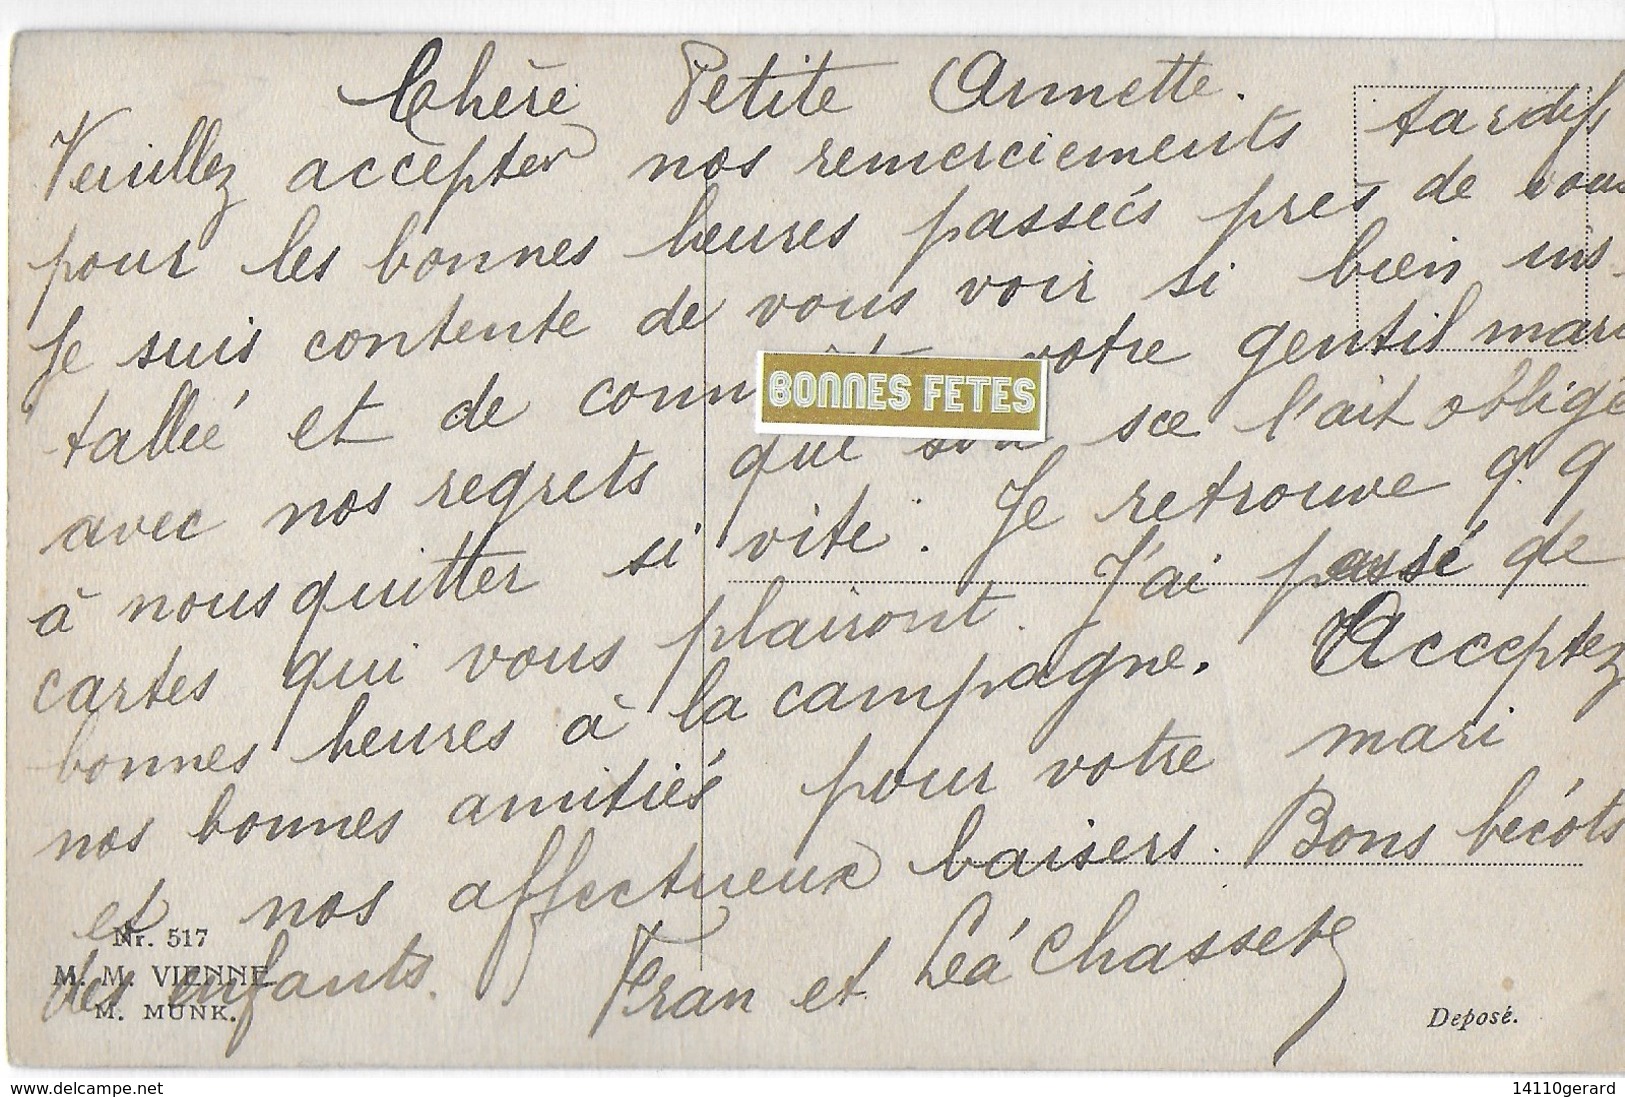 Chère Petite Annette.
Veuillez accepter nos remerciements tardifs
pour les bonnes heures passées près de vous
Je suis contente de vous voir si bien ins-
tallée et de conn votre gentil mari
avec nos regrets que son sce l'ait obligé
à nous quitter si vite. Je retrouve q.q
cartes qui vous plairont. J'ai passé de
bonnes heures à la campagne. Acceptez
nos bonnes amitiés pour votre mari
et nos affectueux baisers. Bons bécots
des enfants. Fran et Léa Chassete
BONNES FETES
Nr. 517
M. M. VIENNE
M. MUNK.
Deposé.
www.delcampe.net
14110gerard